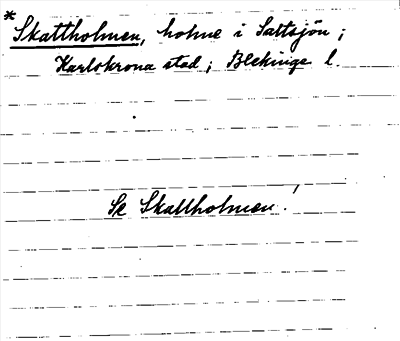 *Skattholmen, holme i Saltsjön;
Karlskrona stad; Blekinge l.
Se Skallholmen!